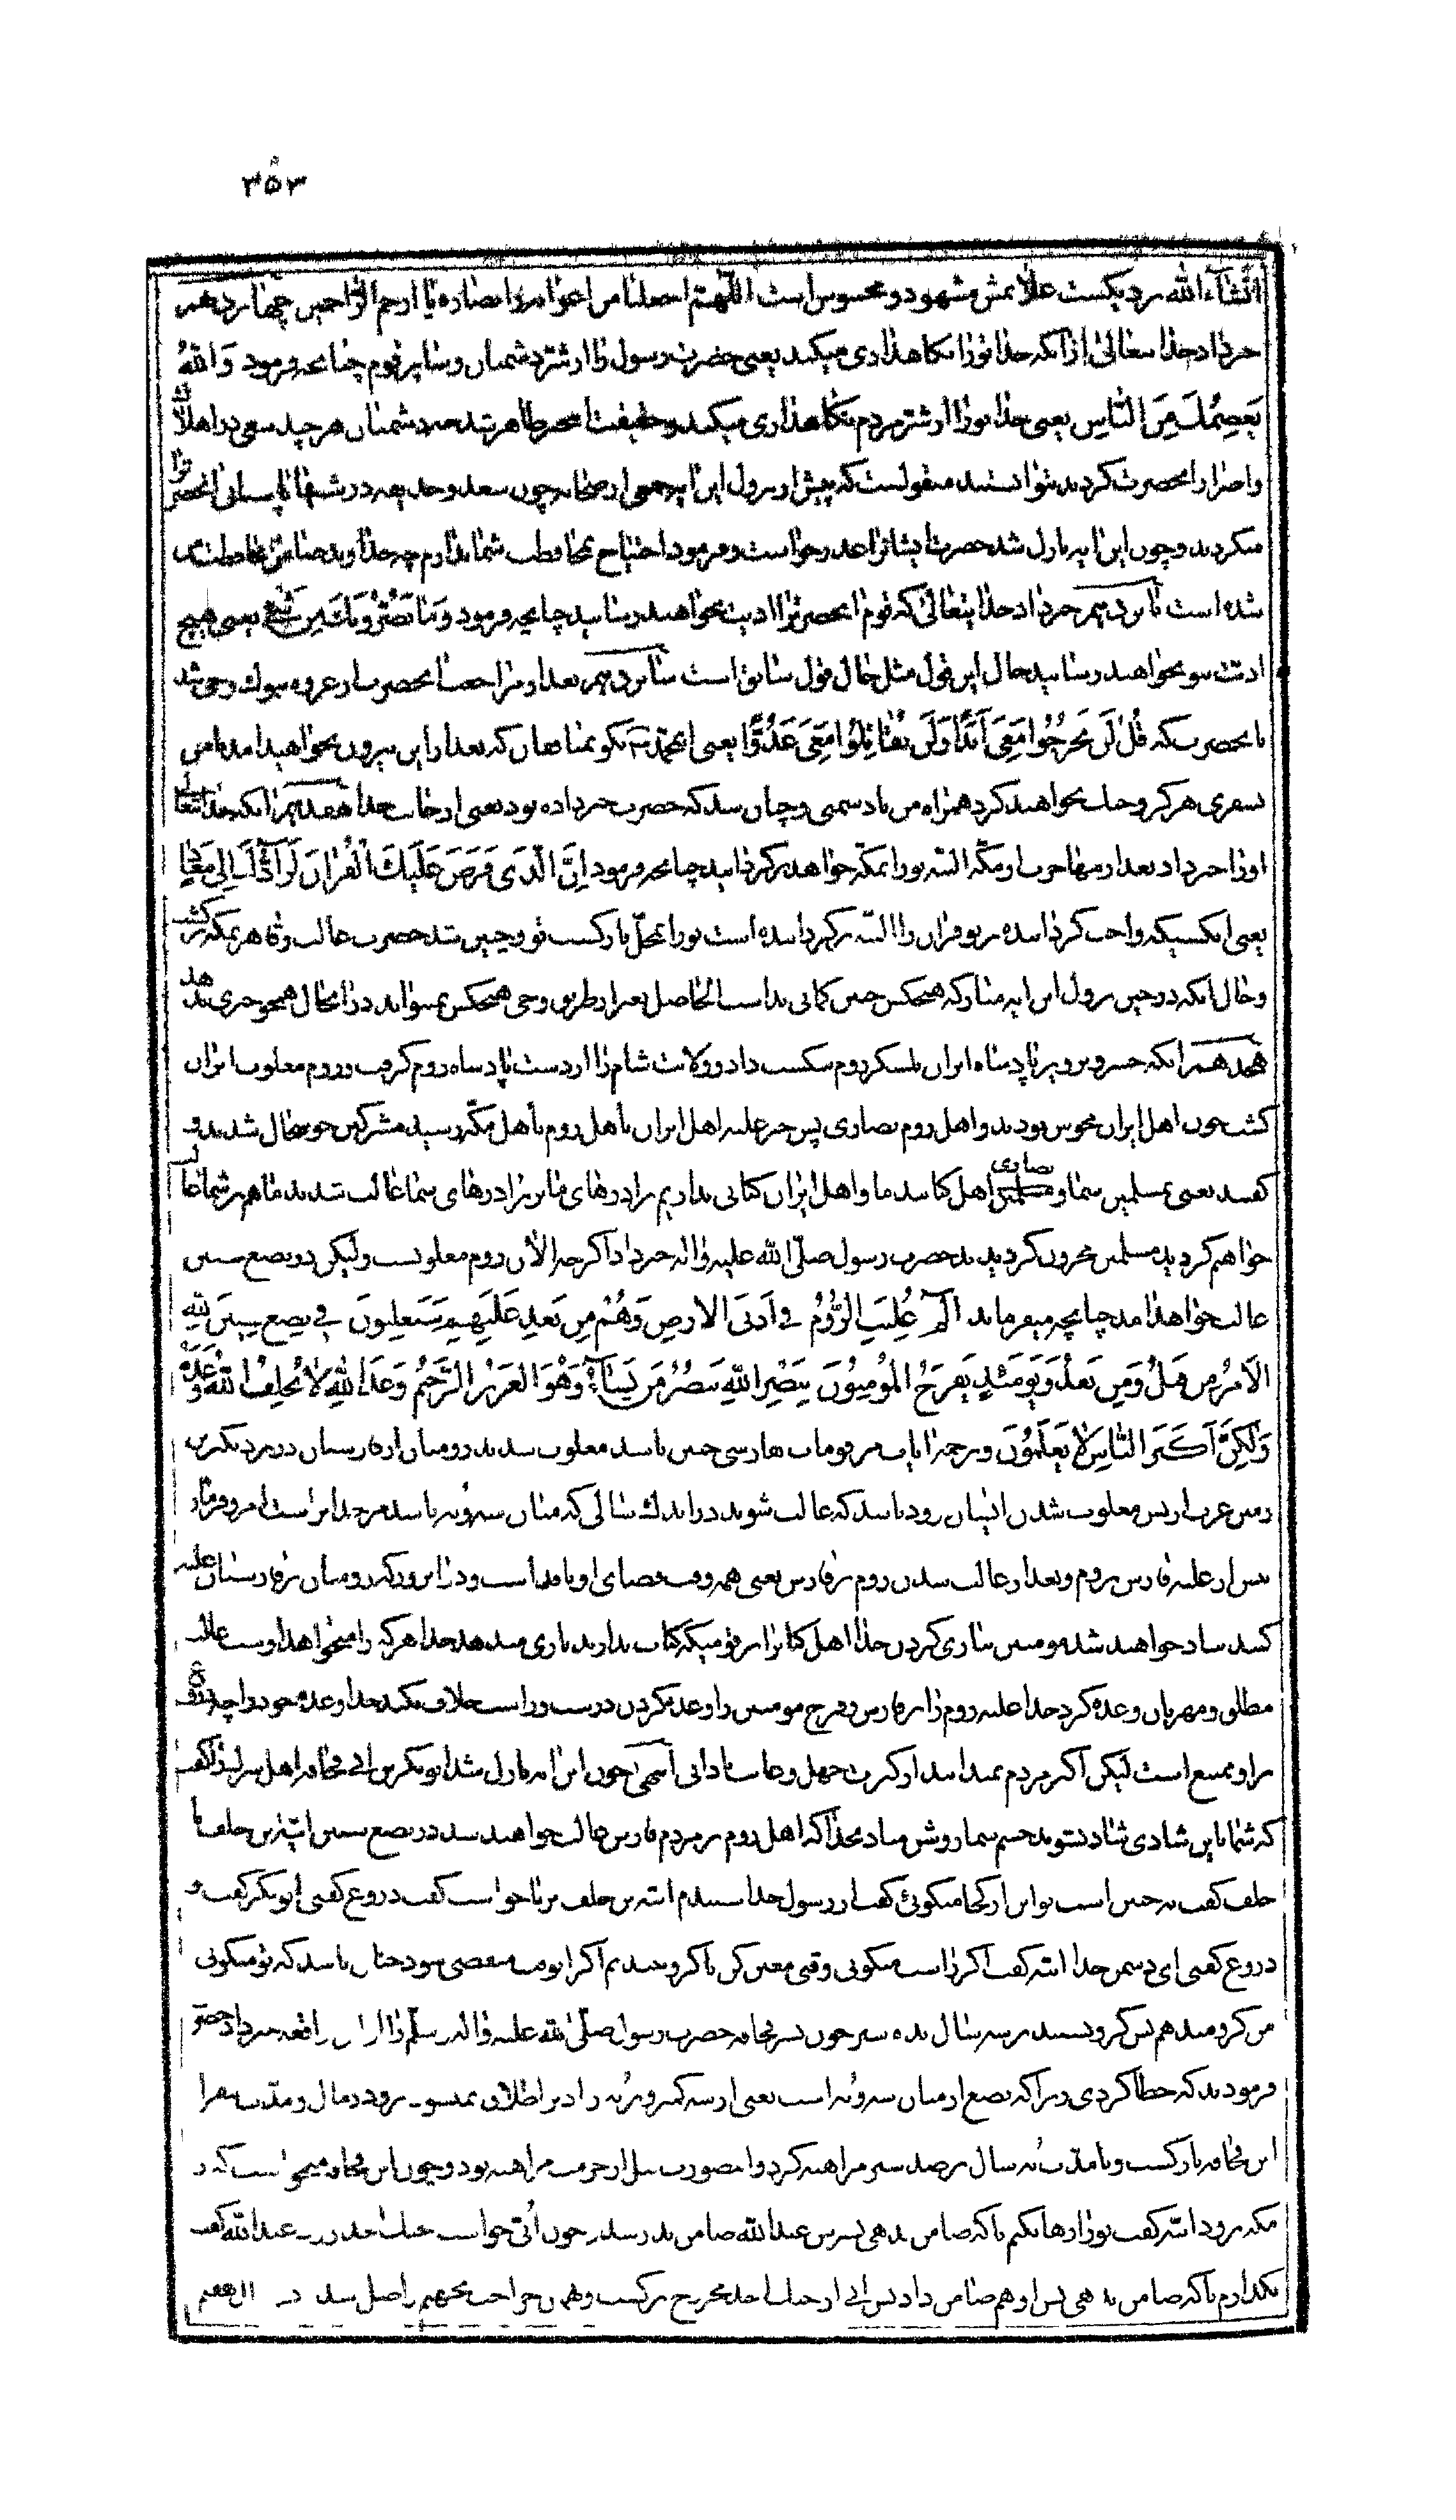 ۳۵۳
انشآء الله نزدیکست علاماتش مشهود و محسوس است اللّهمّ اجعلنا من اعوانه و انصاره یا ارحم الرّاحمین چهاردهم
خبر داد خدا یتعالی از آنکه خدا تو را نگاهداری میکند یعنی حضرت رسول را از شرّ دشمنان و سایر قوم چنانچه فرمود وَ اللهُ
یَعصِمُكَ مِنَ النّاسِ یعنی خدا تو را از شرّ مردم نگاهداری میکند و حقیقت این خبر ظاهر شد چه دشمنان هر چند سعی در اهلاك
و اضرار آنحضرت کردند نتوانستند منقولست که پیش از نزول این آیه جمعی از صحابه چون سعد و حذیفه در شبها پاسبانی آنحضرترا
میکردند و چون این آیه نازل شد حضرت ایشانرا عذر خواست و فرمود احتیاج بمحافظت شما ندارم چه خداوند ضامن محافظت من
شده است پانزدهم خبر داد خدا یتعالی که قوم آنحضرترا اذیت نخواهند رسانید چنانچه فرمود وَ مَا یَضُرُّونَكَ مِن شَیءٍ یعنی هیچ
اذیّت بتو نخواهند رسانید حال این قول مثل حال قول سابق است شانزدهم بعد از مراجعت آنحضرت از غزوه تبوك وحی شد
بآنحضرت که قُل لَن تَخرُجُوا مَعِیَ اَبَدًا وَ لَن تُقاتِلُوا مَعِیَ عَدُوًّا یعنی ای محمّد ص بگو بمنافقان که بعد از این بیرون نخواهید آمد با من
بسفری هرگز و جنك نخواهید کرد همراه من با دشمنی و چنان شد که حضرت خبر داده بود یعنی از جانب خدا هفدهم آنکه خدا یتعالی
او را خبر داد بعد از مهاجرت او مکّه البته تو را بمکّه خواهد برگردانید چنانچه فرمود اِنَّ الَّذی فَرَضَ عَلَیكَ القُرانَ لَرَآدُّكَ اِلی مَعَادٍ
یعنی آنکسیکه واجب گردانیده بر تو قران را البته برگرداننده است تو را بمحلّ بازگشت تو و چنین شد حضرت غالب و قاهر بمکّه برگشت
و حال آنکه در حین نزول این آیه مبارکه هیچکس چنین گمانی نداشت الحاصل بغیر از طریق وحی هیچکس نمیتواند در آنحال همچو خبری بدهد
هجدهم آنکه خسرو پرویز پادشاه ایران لشکر روم شکست داد و ولایت شام را از دست پادشاه روم گرفت و روم مغلوب ایران
گشت چون اهل ایران مجوس بودند و اهل روم نصاری پس خبر غلبه اهل ایران باهل روم باهل مکّه رسید مشرکین خوشحال شدند و
گفتند یعنی بمسلمین شما و نصاری اهل کتابید ما و اهل ایران کتابی نداریم برادرهای ما بر برادرهای شما غالب شدند ما هم بر شما غالب
خواهیم گردید مسلمین محزون گردیدند حضرت رسول صلّی الله علیه و اله خبر داد اگر چه الآن روم مغلوبست ولیکن در بضع سنین
غالب خواهد آمد چنانچه میفرماید الم غُلِبَتِ الرُّومُ فی اَدنَی الاَرضِ وَ هُم مِن بَعدِ غَلَبِهِم سَیَغلِبُونَ فی بِضعِ سِنینَ لِلّهِ
الاَمرُ مِن قَبلُ وَ مِن بَعدُ وَ یَومَئِذٍ یَفرَحُ المُومِنُونَ بِنَصرِ اللهِ یَنصُرُ مَن یَشآءُ وَ هُوَ العَزیزُ الرَّحیمُ وَعدَ اللهِ لا یُخلِفُ اللهُ وَعدَهُ
وَ لکِنَّ اَکثَرَ النّاسِ لا یَعلَمُونَ و ترجمه ایات مرقومات بفارسی چنین باشد مغلوب شدند رومیان از فارسیان در نزدیکترین
زمین عرب از پس مغلوب شدن ایشان زود باشد که غالب شوند در اندك سالی که میان سه و نه باشد مر خدایراست امر و فرمان
پیش از غلبه فارس بروم و بعد از غالب شدن روم بر فارس یعنی همه وقت قضای او نافذ است و در آنروز که رومیان بر فارسیان غلبه
کنند شاد خواهند شد مومنین بیاری کردن خدا اهل کتابرا بر قومیکه کتاب ندارند یاری میدهد خدا هر که را میخواهد اوست غالب
مطلق و مهربان وعده کرد خدا غلبه روم را بر فارس و فرح مومنین را وعده کردن درست و راست خلاف نکند خدا وعده خود را چه دروغ
بر او ممتنع است لیکن اکثر مردم نمیدانند از کثرت جهل و غایت نادانی انتهی چون این آیه نازل شد ابوبکر بن ابی قحافه اهل شرك را گفت
که شما باین شادی شاد نشوید چشم شما روشن مباد بخدا که اهل روم بر مردم فارس غالب خواهند شد در بضع سنین ابیّ بن خلف با
خلف گفت نه چنین است تو این از کجا میگوئی گفت از رسول خدا شنیدم ابیّ بن خلف برپا خواست گفت دروغ گفتی ابوبکر گفت
دروغ گفتی ای دشمن خدا ابیّ گفت اگر راست میگوئی وقتی معیّن کن تا گرو بندیم اگر آنوقت منقضی شود چنان باشد که تو میگوئی
من گرو میدهم پس گرو بستند بر سه سال بده شتر چون پسر قحافه حضرت رسول صلّی الله علیه و اله و سلّم را از این واقعه خبر داد حضرت
فرمودند که خطا کردی زیرا که بضع از میان سه و نه است یعنی از سه کمتر و نه را دیر اطلاق نمیشود برو در مال و مدّت بیفزا
ابن قحافه بازگشت و تا مدّت نه سال بر صد شتر مراهنه کرد و اینصورت قبل از حرمت مراهنه بود و چون ابن قحافه میخواست که از
مکّه برود ابیّ گفت تو را رها نکنم تا که ضامن بدهی پسرش عبدالله ضامن پدر شد چون اُبیّ خواست بجنك احد رود عبدالله گفت
نگذارم تا که ضامن بدهی پس او هم ضامن داد پس ابیّ از جنك احد مجروح برگشت و همان جراحت بجهنّم واصل شد